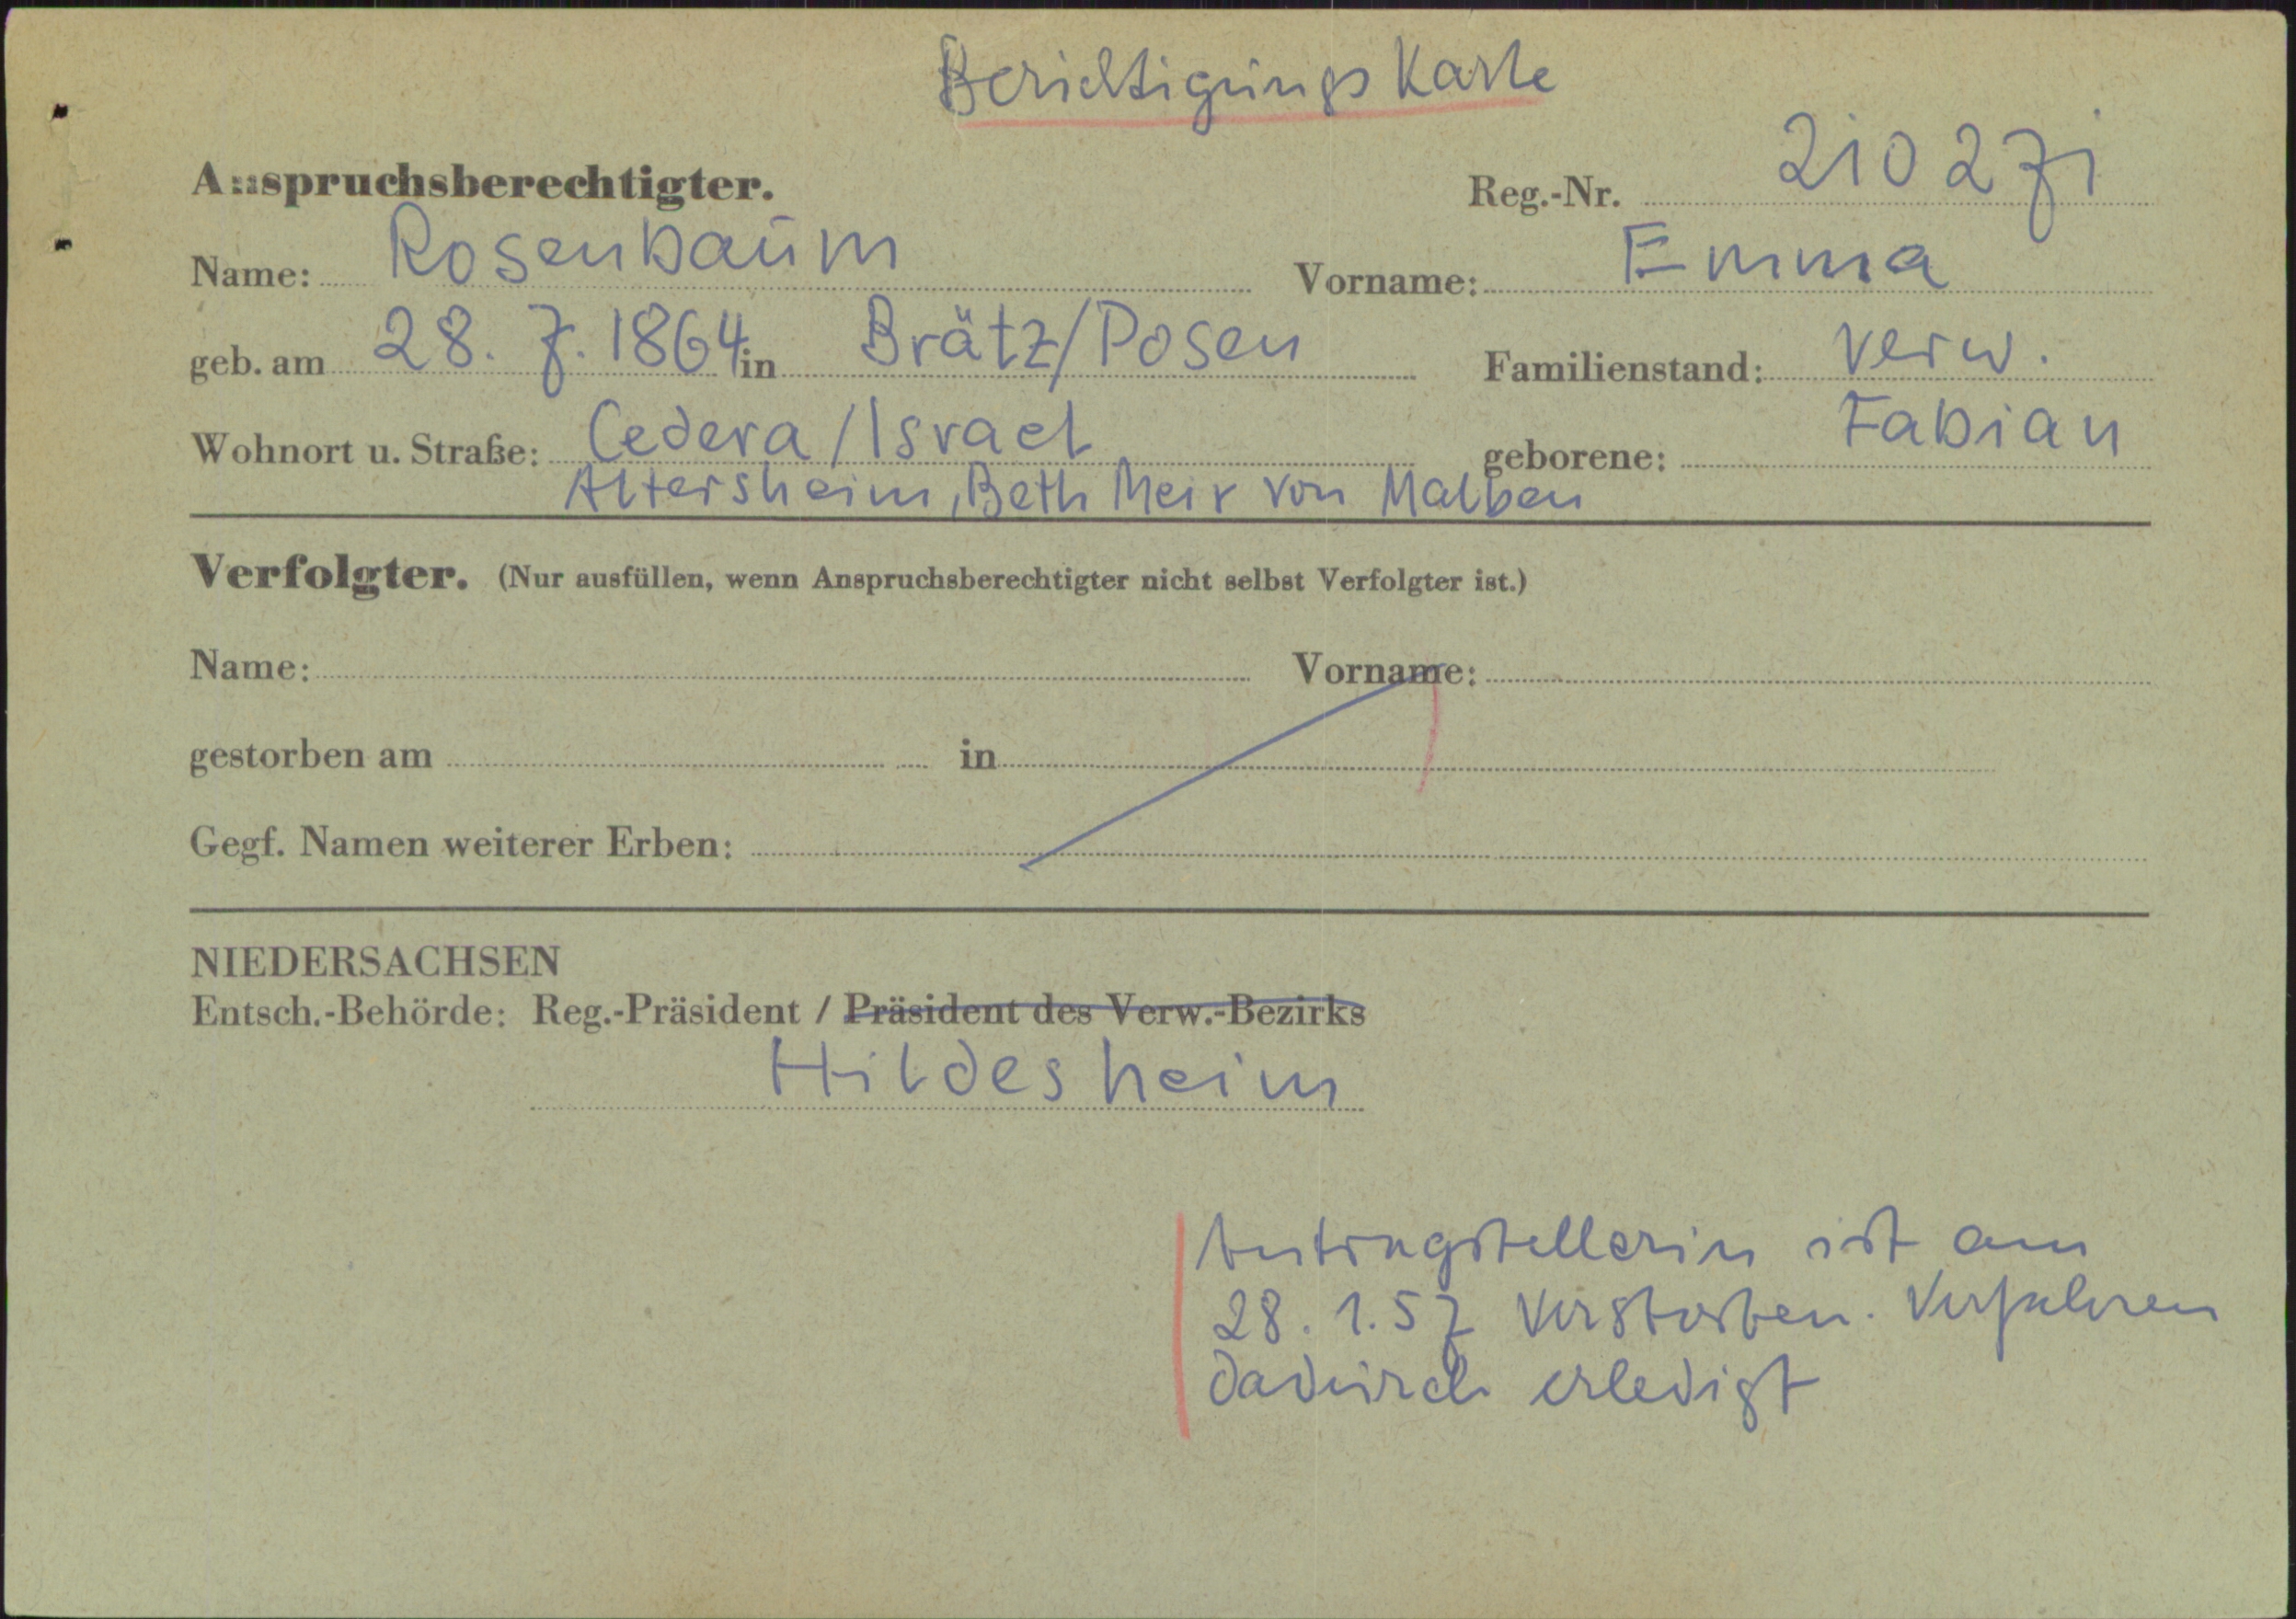 Berichtigungskarte
Anspruchsberechtigter. Reg.-Nr. 210271
Name: Rosenbaum Vorname: Emma
geb. am 28. 7. 1864 in Brätz/Posen Familienstand: verw.
Wohnort u. Straße: Cedera/Israel geborene: Fabian
Altersheim, Beth Meir von Malben
Verfolgter. (Nur ausfüllen, wenn Anspruchsberechtigter nicht selbst Verfolgter ist.)
Name: Vorname:
gestorben am in
Gegf. Namen weiterer Erben:
NIEDERSACHSEN
Entsch.-Behörde: Reg.-Präsident / Präsident des Verw.-Bezirks
Hildesheim
Antragstellerin ist am
28. 1. 57 verstorben. Verfahren
dadurch erledigt